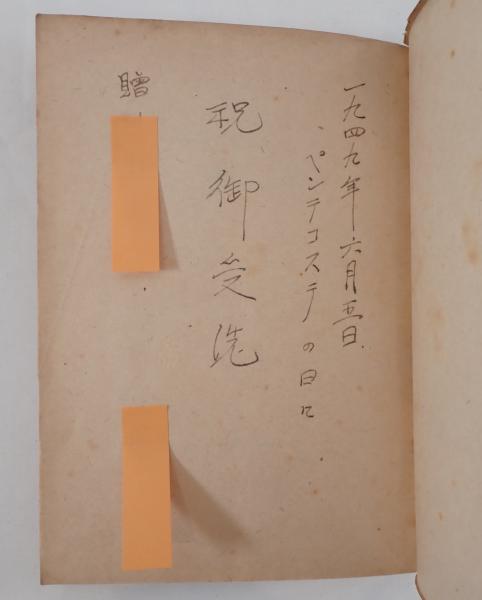 一九四九年六月五日
ペンテコステの日に
祝御受洗
贈